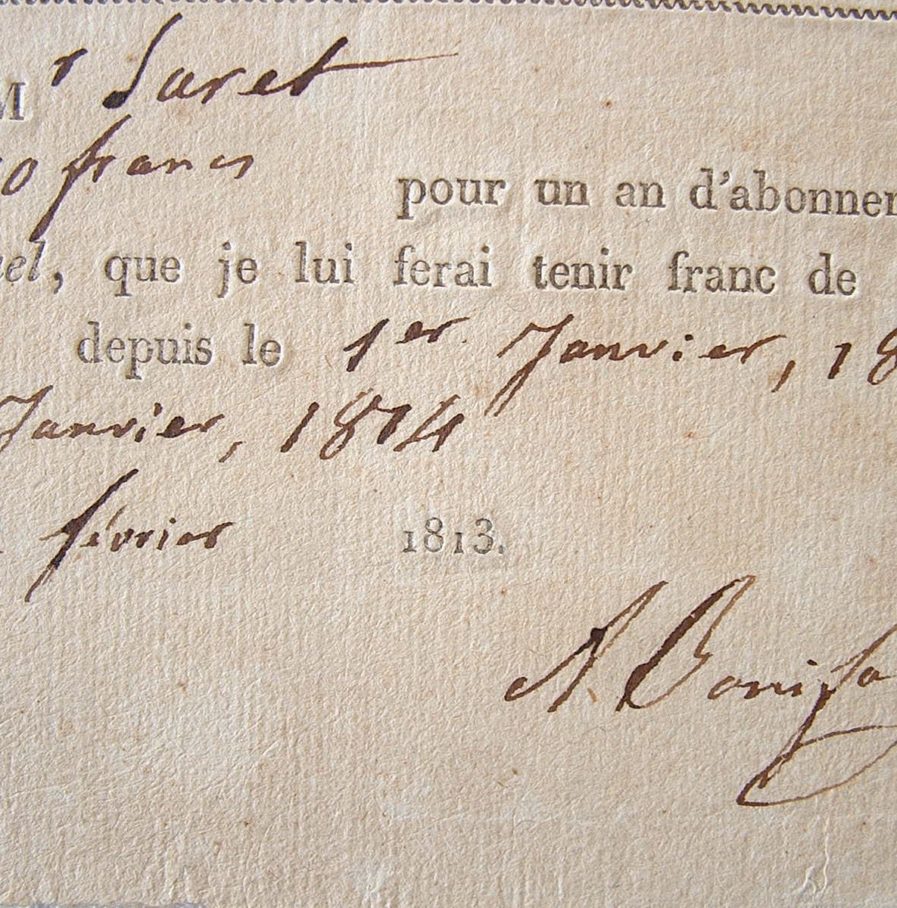 Mr Suret
0 francs
pour un an d'abonnem
el, que je lui ferai tenir franc de
depuis le 1er Janvier, 18
Janvier, 1814
février 1813.
A Bonifa